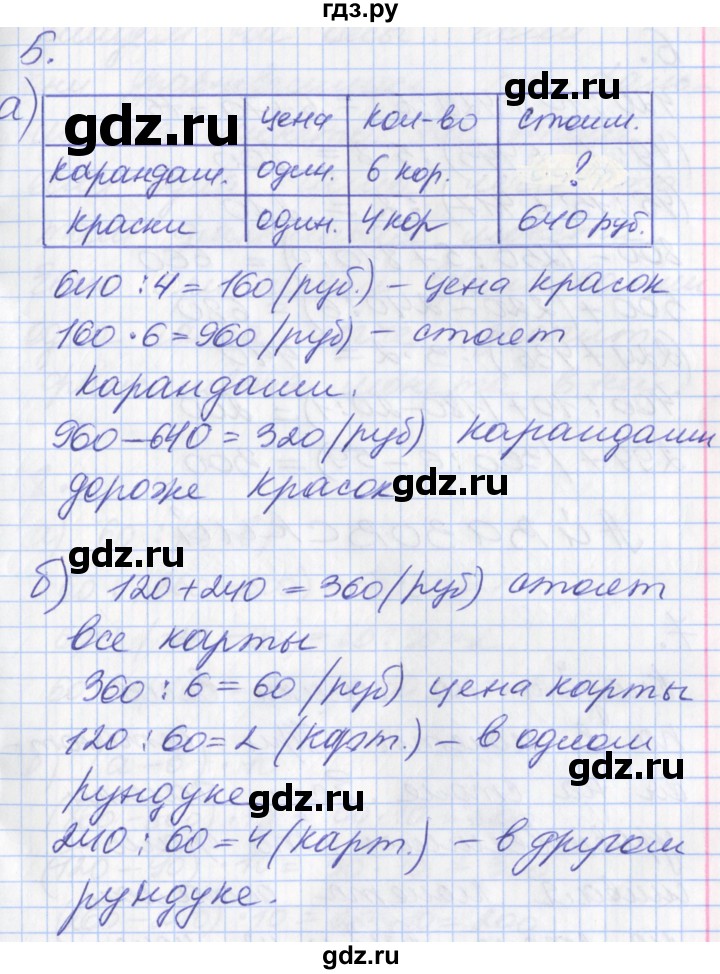 гдз.ру
5.
а)
gdz.ru цена кол-во стоим.
gdz.ru
карандаш. один. 6 кор. ?
краски один. 4 кор 640 руб.
640 : 4 = 160 (руб.) – цена красок
160 · 6 = 960 (руб) – стоят
карандаши.
960 – 640 = 320 (руб) карандаши
дороже красок
gdz.ru
gdz.ru
б) 120 + 240 = 360 (руб) стоят
все карты
360 : 6 = 60 (руб) цена карты
120 : 60 = 2 (карт.) – в одном
gdz.ru
рундуке
gdz.ru
240 : 60 = 4 (карт.) – в другом
рундуке.
gdz.ru